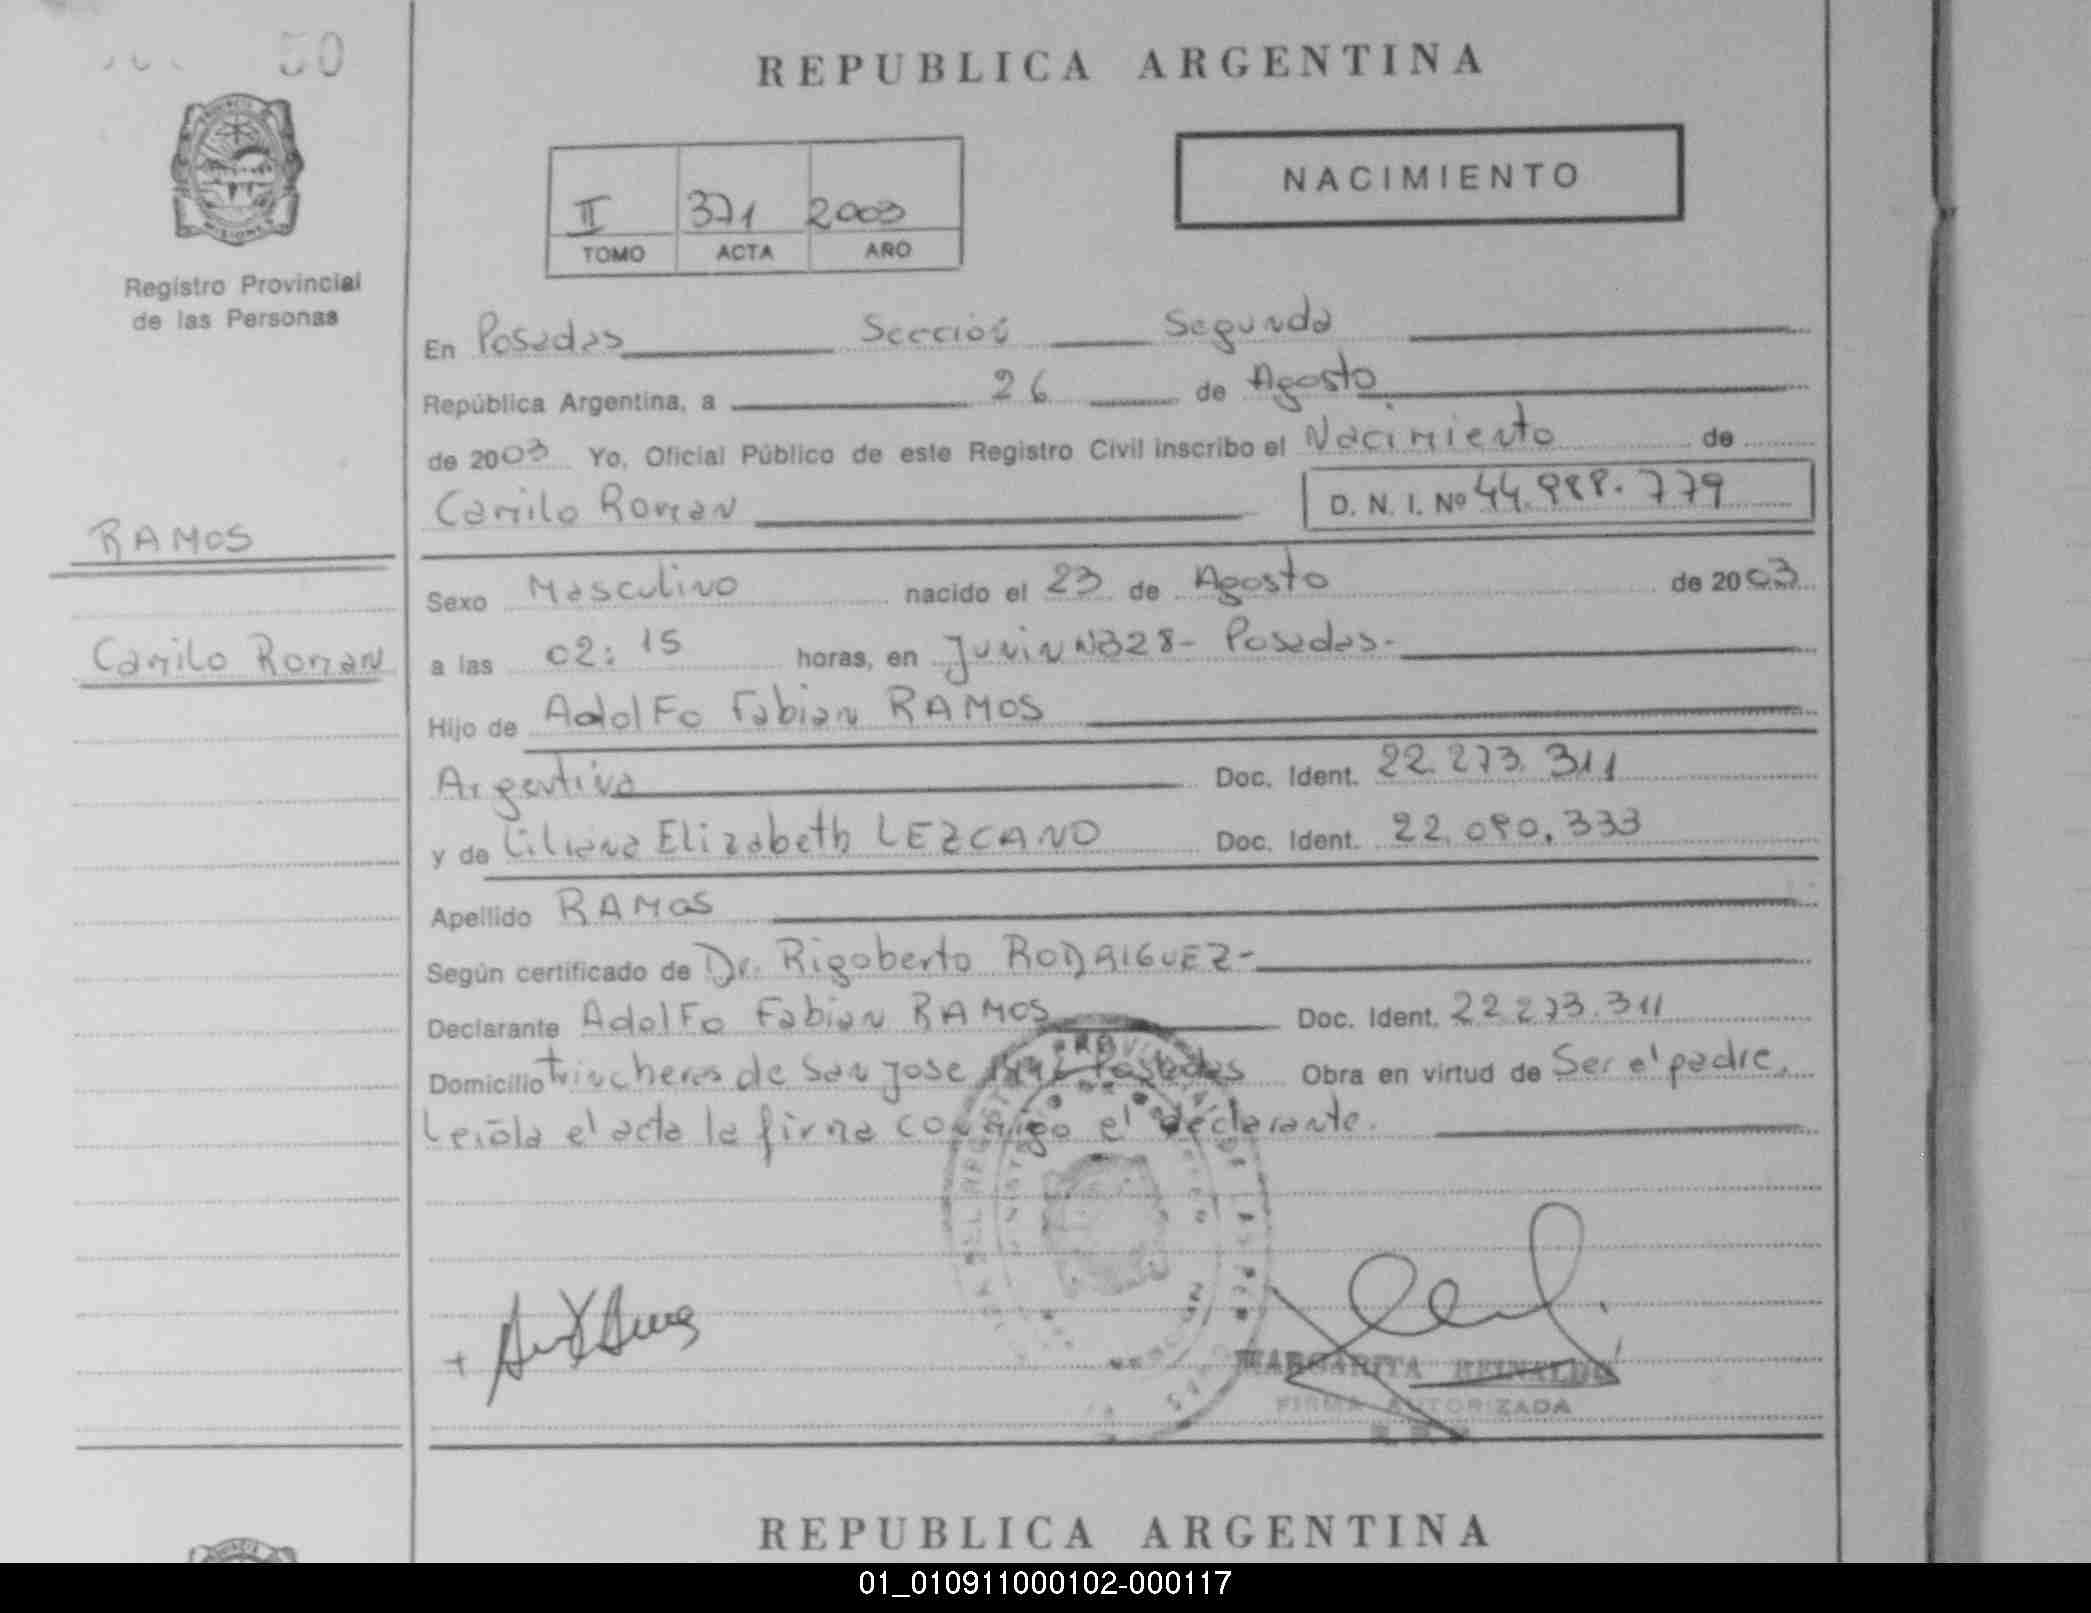 50
REPUBLICA ARGENTINA
NACIMIENTO
II 371 2003
TOMO ACTA AÑO
MISIONES
Registro Provincial
de las Personas
En Posadas Sección Segunda
República Argentina, a 26 de Agosto
de 2003 Yo, Oficial Público de este Registro Civil inscribo el Nacimiento de
Camilo Roman D. N. I. Nº 44.988.779
RAMOS
Camilo Roman
Sexo Masculino nacido el 23 de Agosto de 2003
a las 02:15 horas, en Junin Posadas-
Hijo de Adolfo Fabian RAMOS
Argentina Doc. Ident. 22.273.311
y de Liliana Elizabeth LEZCANO Doc. Ident. 22.090.333
Apellido RAMOS
Según certificado de Dr. Rigoberto RODRIGUEZ-
Declarante Adolfo Fabian RAMOS Doc. Ident. 22.273.311
Domicilio trincheras de San jose Posadas Obra en virtud de Ser el padre.
Leióla el acta la firma conmigo el declarante.
MARGARITA REINALDO
FIRMA AUTORIZADA
REPUBLICA ARGENTINA
01_010911000102-000117